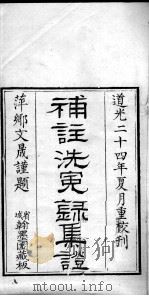 道光二十四年夏月重校刊
補註洗冤錄集證
萍鄉文晟謹題
省城翰墨園藏板
www.modutu.com